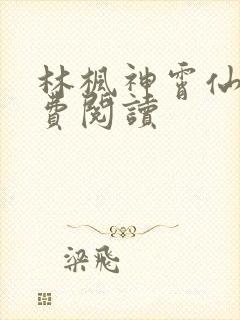 林楓神霄仙
費閱讀
梁飛